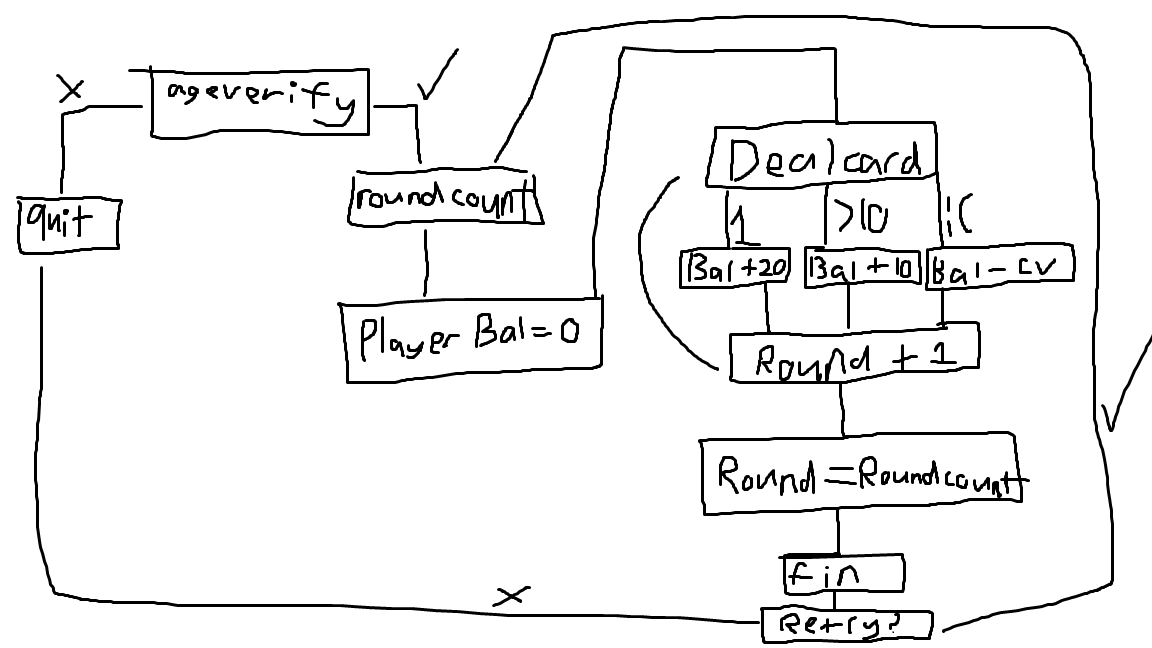 ageverify
quit
roundcount
Player Bal=0
Dealcard
1
>10
Bal+20
Bal+10
Bal-cv
Round+1
Round=Roundcount
fin
Retry?